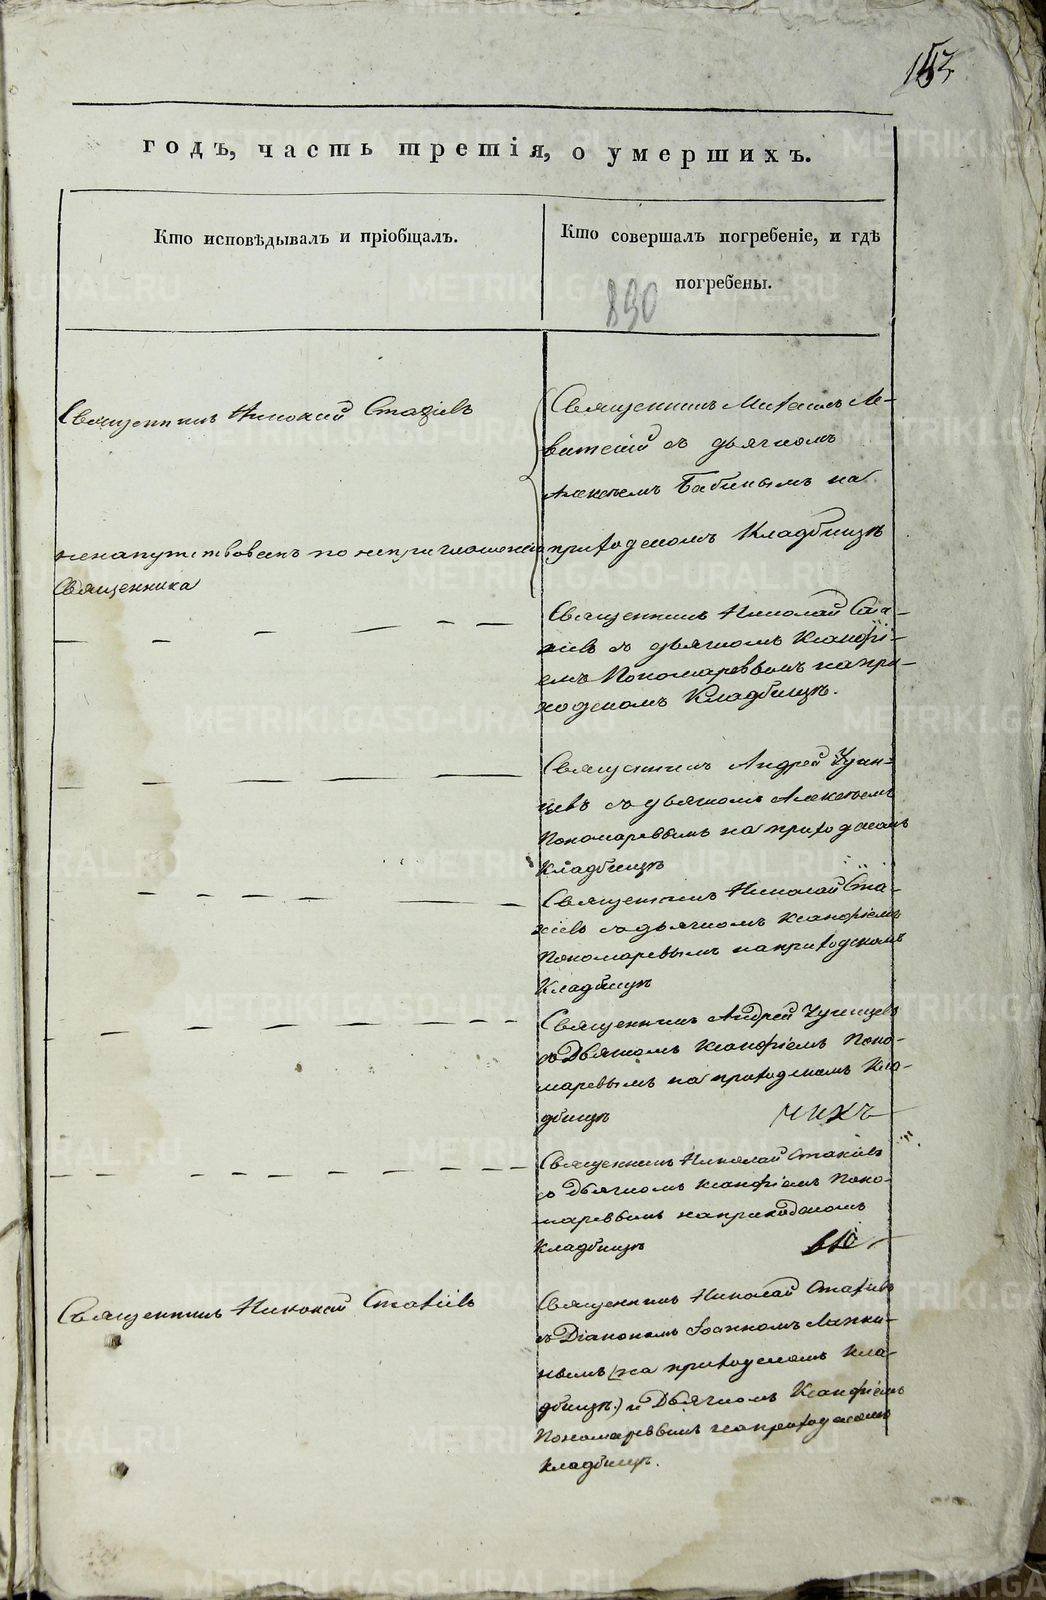 153
годъ, часть третія, о умершихъ.
Кто исповѣдывалъ и пріобщалъ.
Кто совершалъ погребеніе, и гдѣ
погребены.
890
Священникъ Николай Стахіевъ
Священникъ Михаилъ Ле-
витскій съ дьячкомъ
Алексѣемъ Бабинымъ на
приходскомъ Кладбищѣ
ненапутствованъ по неприглашенію
Священника
Священникъ Николай Ста-
хіевъ съ дьячкомъ Ксанфі-
емъ Пономаревымъ на при-
ходскомъ Кладбищѣ.
Священникъ Андрей
съ дьячкомъ Алексѣемъ
Пономаревымъ на приходскомъ
Кладбищѣ
Священникъ Николай Ста-
хіевъ съ дьячкомъ Ксанфіемъ
Пономаревымъ на приходскомъ
Кладбищѣ
Священникъ Андрей
съ Дьячкомъ Ксанфіемъ Поно-
маревымъ на приходскомъ Кла-
дбищѣ
Священникъ Николай Стахіевъ
съ Дьячкомъ Ксанфіемъ Поно-
маревымъ на приходскомъ
Кладбищѣ
Священникъ Николай Стахіевъ
Священникъ Николай Стахіевъ
съ Діакономъ Іоанномъ
(на приходскомъ Кла-
дбищѣ) и Дьячкомъ Ксанфіемъ
Пономаревымъ на приходскомъ
Кладбищѣ.
METRIKI.GASO-URAL.RU